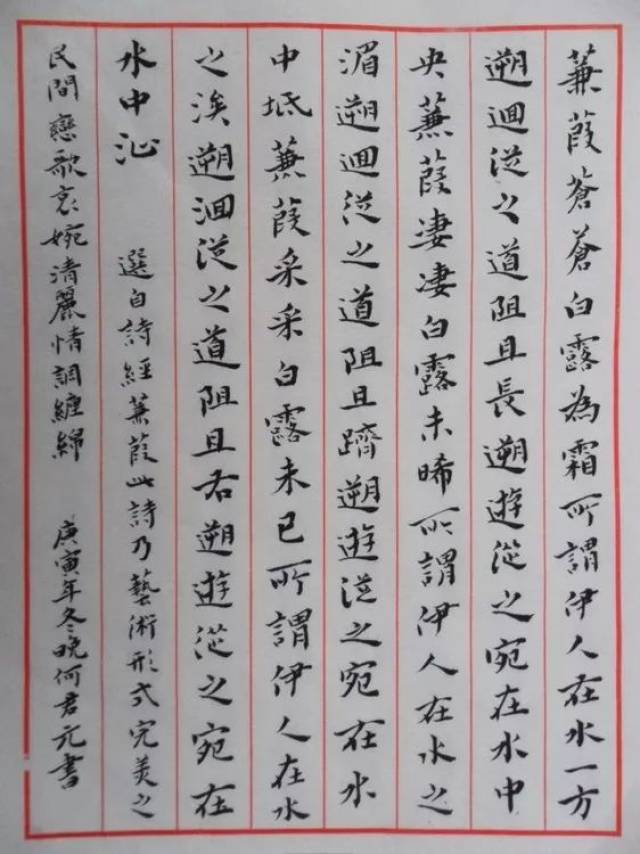 蒹葭蒼蒼白露為霜所謂伊人在水一方
遡迴從之道阻且長遡遊從之宛在水中
央蒹葭淒淒白露未晞所謂伊人在水之
湄遡迴從之道阻且躋遡遊從之宛在水
中坻蒹葭采采白露未已所謂伊人在水
之涘遡迴從之道阻且右遡遊從之宛在
水中沚 選自詩經蒹葭此詩乃藝術形式完美之
民間戀歌哀婉清麗情調纏綿 庚寅年冬晚何君元書